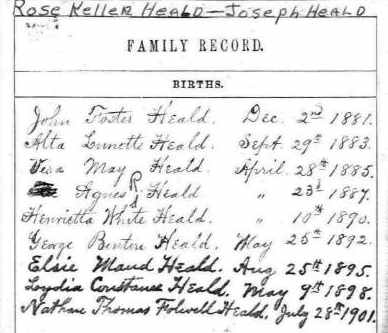 Rose Keller Heald — Joseph Heald
FAMILY RECORD.
BIRTHS.
John Foster Heald. Dec. 2nd 1881.
Alta Lunette Heald. Sept. 29th 1883.
Vesa May Heald. April. 28th 1885.
Agnes R Heald " 23d 1887.
Henrietta White Heald. " 10th 1890.
George Heald. May 25th 1892.
Elsie Maud Heald. Aug 25th 1895.
Lydia Constance Heald. May 9th 1898.
Nathan Thomas Folwell Heald. July 28th 1901.